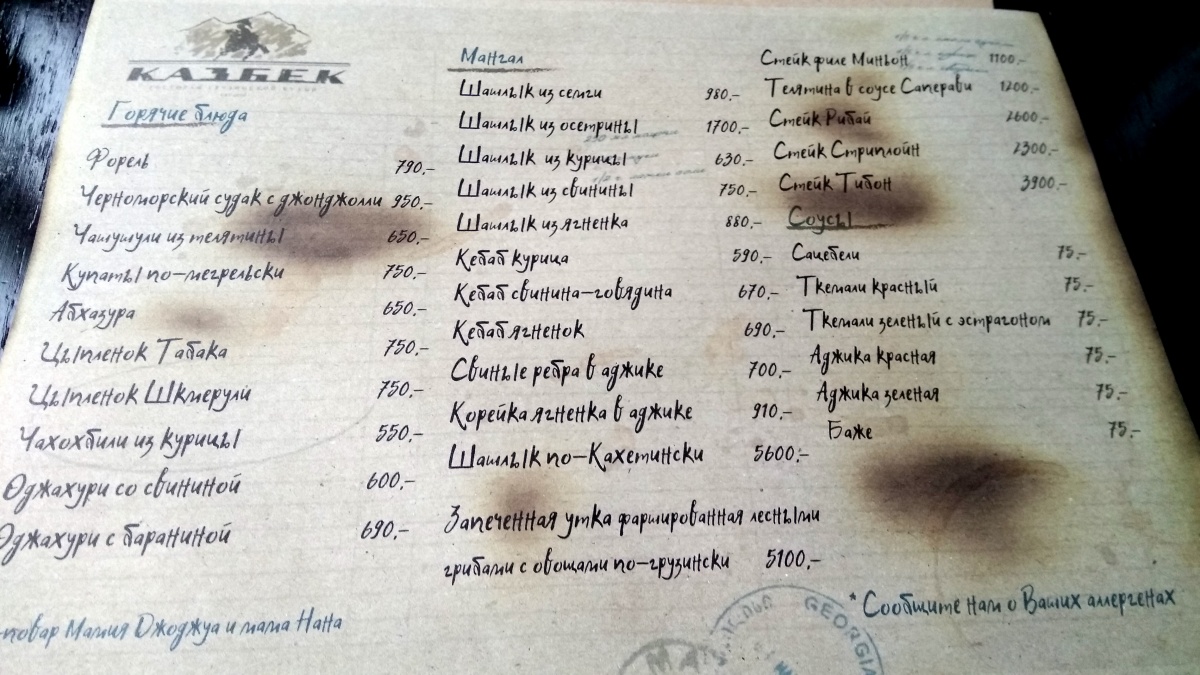 КАЗБЕК
Горячие блюда
Форель 790.-
Черноморский судак с джонджоли 950.-
Чашушули из телятины 650.-
Купаты по-мегрельски 750.-
Абхазура 650.-
Цыпленок Табака 750.-
Цыпленок Шкмерули 750.-
Чахохбили из курицы 550.-
Оджахури со свининой 600.-
Оджахури с бараниной 690.-
повар Мамия Джоджуа и мама Нана
Мангал
Шашлык из семги 980.-
Шашлык из осетрины 1700.-
Шашлык из курицы 630.-
Шашлык из свинины 750.-
Шашлык из ягненка 880.-
Кебаб курица 590.-
Кебаб свинина-говядина 670.-
Кебаб ягненок 690.-
Свиные ребра в аджике 700.-
Корейка ягненка в аджике 910.-
Шашлык по-Кахетински 5600.-
Запеченная утка фаршированная лесными
грибами с овощами по-грузински 5100.-
Стейк филе Миньон 1100.-
Телятина в соусе Саперави 1200.-
Стейк Рибай 2600.-
Стейк Стриплойн 2300.-
Стейк Тибон 3900.-
Соусы
Сацебели 75.-
Ткемали красный 75.-
Ткемали зеленый с эстрагоном 75.-
Аджика красная 75.-
Аджика зеленая 75.-
Баже 75.-
*Сообщите нам о Ваших аллергенах
GEORGIA